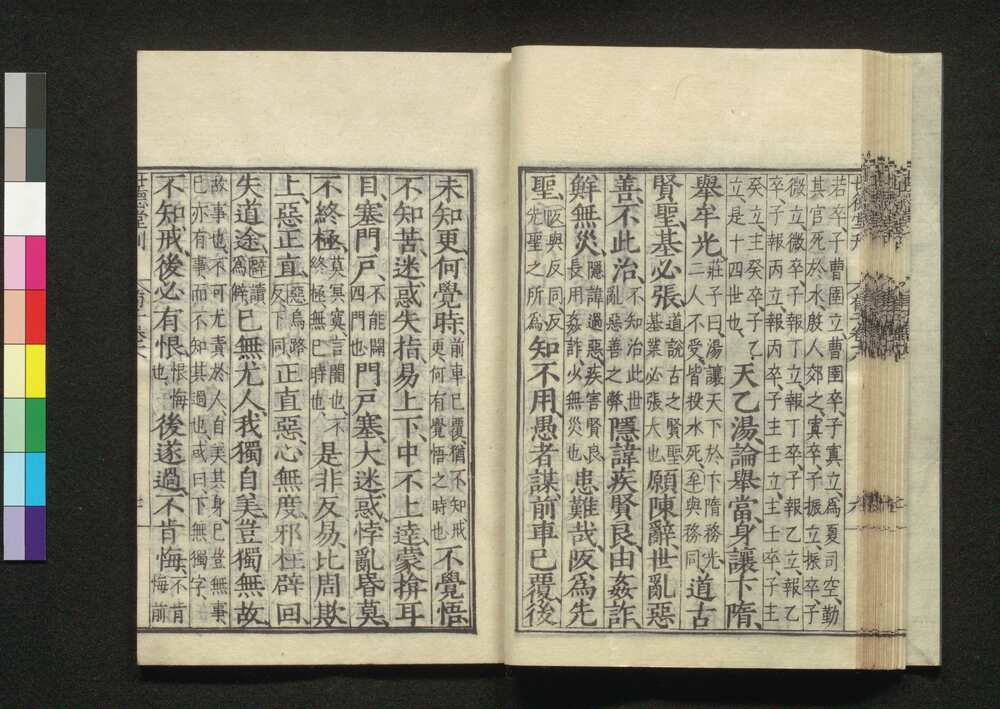 若卒子曹圉立曹圉卒子寘立爲夏司空勤
其官死於水殷人郊之寘卒子振立振卒子
微立微卒子報丁立報丁卒子報乙立報乙
卒子報丙立報丙卒子主壬立主壬卒子主
癸立主癸卒子乙立是十四世也天乙湯論舉當身讓卞隋
舉牟光莊子曰湯讓天下於卞隋務光二人不受皆投水死牟與務同道古
賢聖基必張道說古之賢聖基業必張大也願陳辭世亂惡
善不此治不知治此世亂惡善之弊隱諱疾賢良由姦詐
鮮無災隱諱過惡疾害賢良長用姦詐少無災也患難哉阪爲先
聖阪與反同反先聖之所爲知不用愚者謀前車已覆後
未知更何覺時前車已覆猶不知戒更何有覺悟之時也不覺悟
不知苦迷惑失指易上下中不上逹蒙揜耳
目塞門戶不能闢四門也門戶塞大迷惑悖亂昏莫
不終極莫冥寞言闇也不終極無已時也是非反易比周欺
上惡正直惡烏路反下同正直惡心無度邪枉辟回
失道途辟讀爲僻已無尤人我獨自美豈獨無故
故事也不可尤責於人自美其身已豈無事
已亦有事而不知其過也或曰下無獨字
不知戒後必有恨恨悔也後遂過不肯悔不肯悔前
世德堂刊